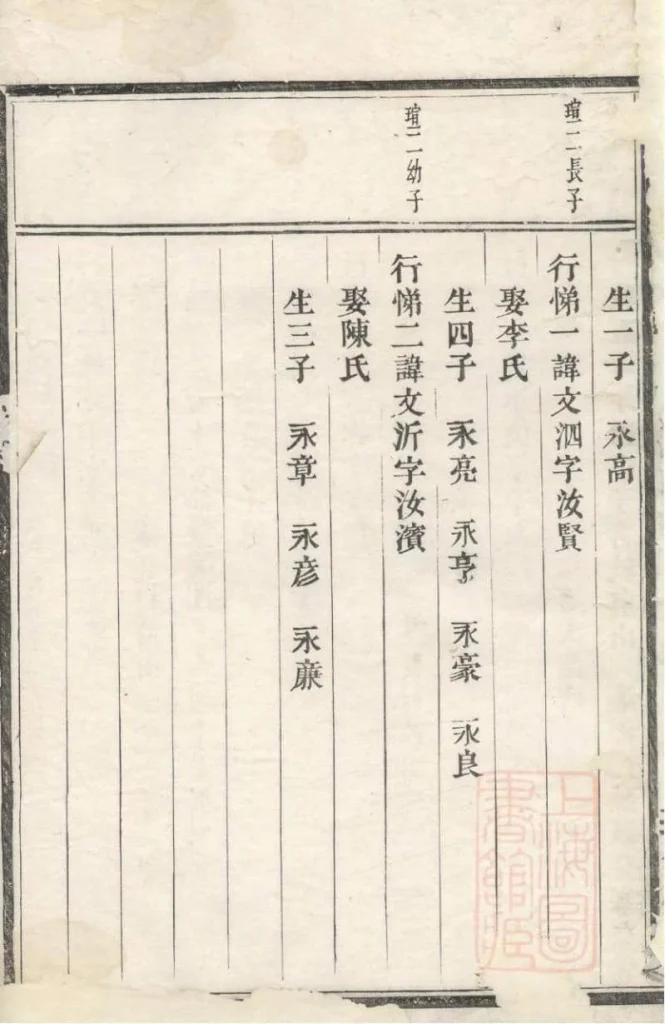 生一子 永高
瑄二一長子
行悌一諱文泗字汝賢
娶李氏
生四子 永亮 永亨 永豪 永良
瑄二一幼子
行悌二諱文沂字汝濱
娶陳氏
生三子 永章 永彦 永廉
上海圖
書館藏